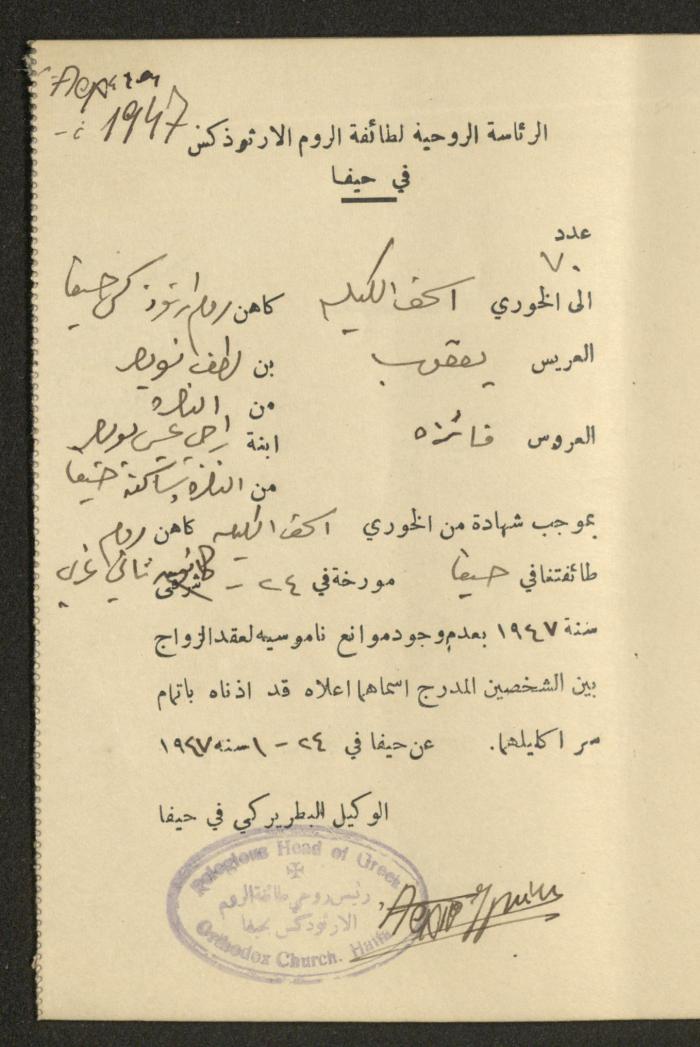 1947
الرئاسة الروحية لطائفة الروم الارثوذكس
في حيفا
عدد
٧٠
الى الخوري اسحق الكيله كاهن روم ارثوذكس حيفا
العريس يعقوب بن لطف نويصر
من الناصره
العروس فائزه ابنة راجي عيسى نويصر
من الناصره وساكنة حيفا
بموجب شهادة من الخوري اسحق الكيله كاهن روم
طائفتنا في حيفا مورخة في ٢٤ - كانون ثاني غربي
سنة ١٩٤٧ بعدم وجود موانع ناموسيه لعقد الزواج
بين الشخصين المدرج اسماهما اعلاه قد اذناه باتمام
سر اكليلهما. عن حيفا في ٢٤ - ١ سنه ١٩٤٧
الوكيل البطريركي في حيفا
Religious Head of Greek
رئيس روحي طائفة الروم
الارثوذكس بحيفا
Orthodox Church. Haifa